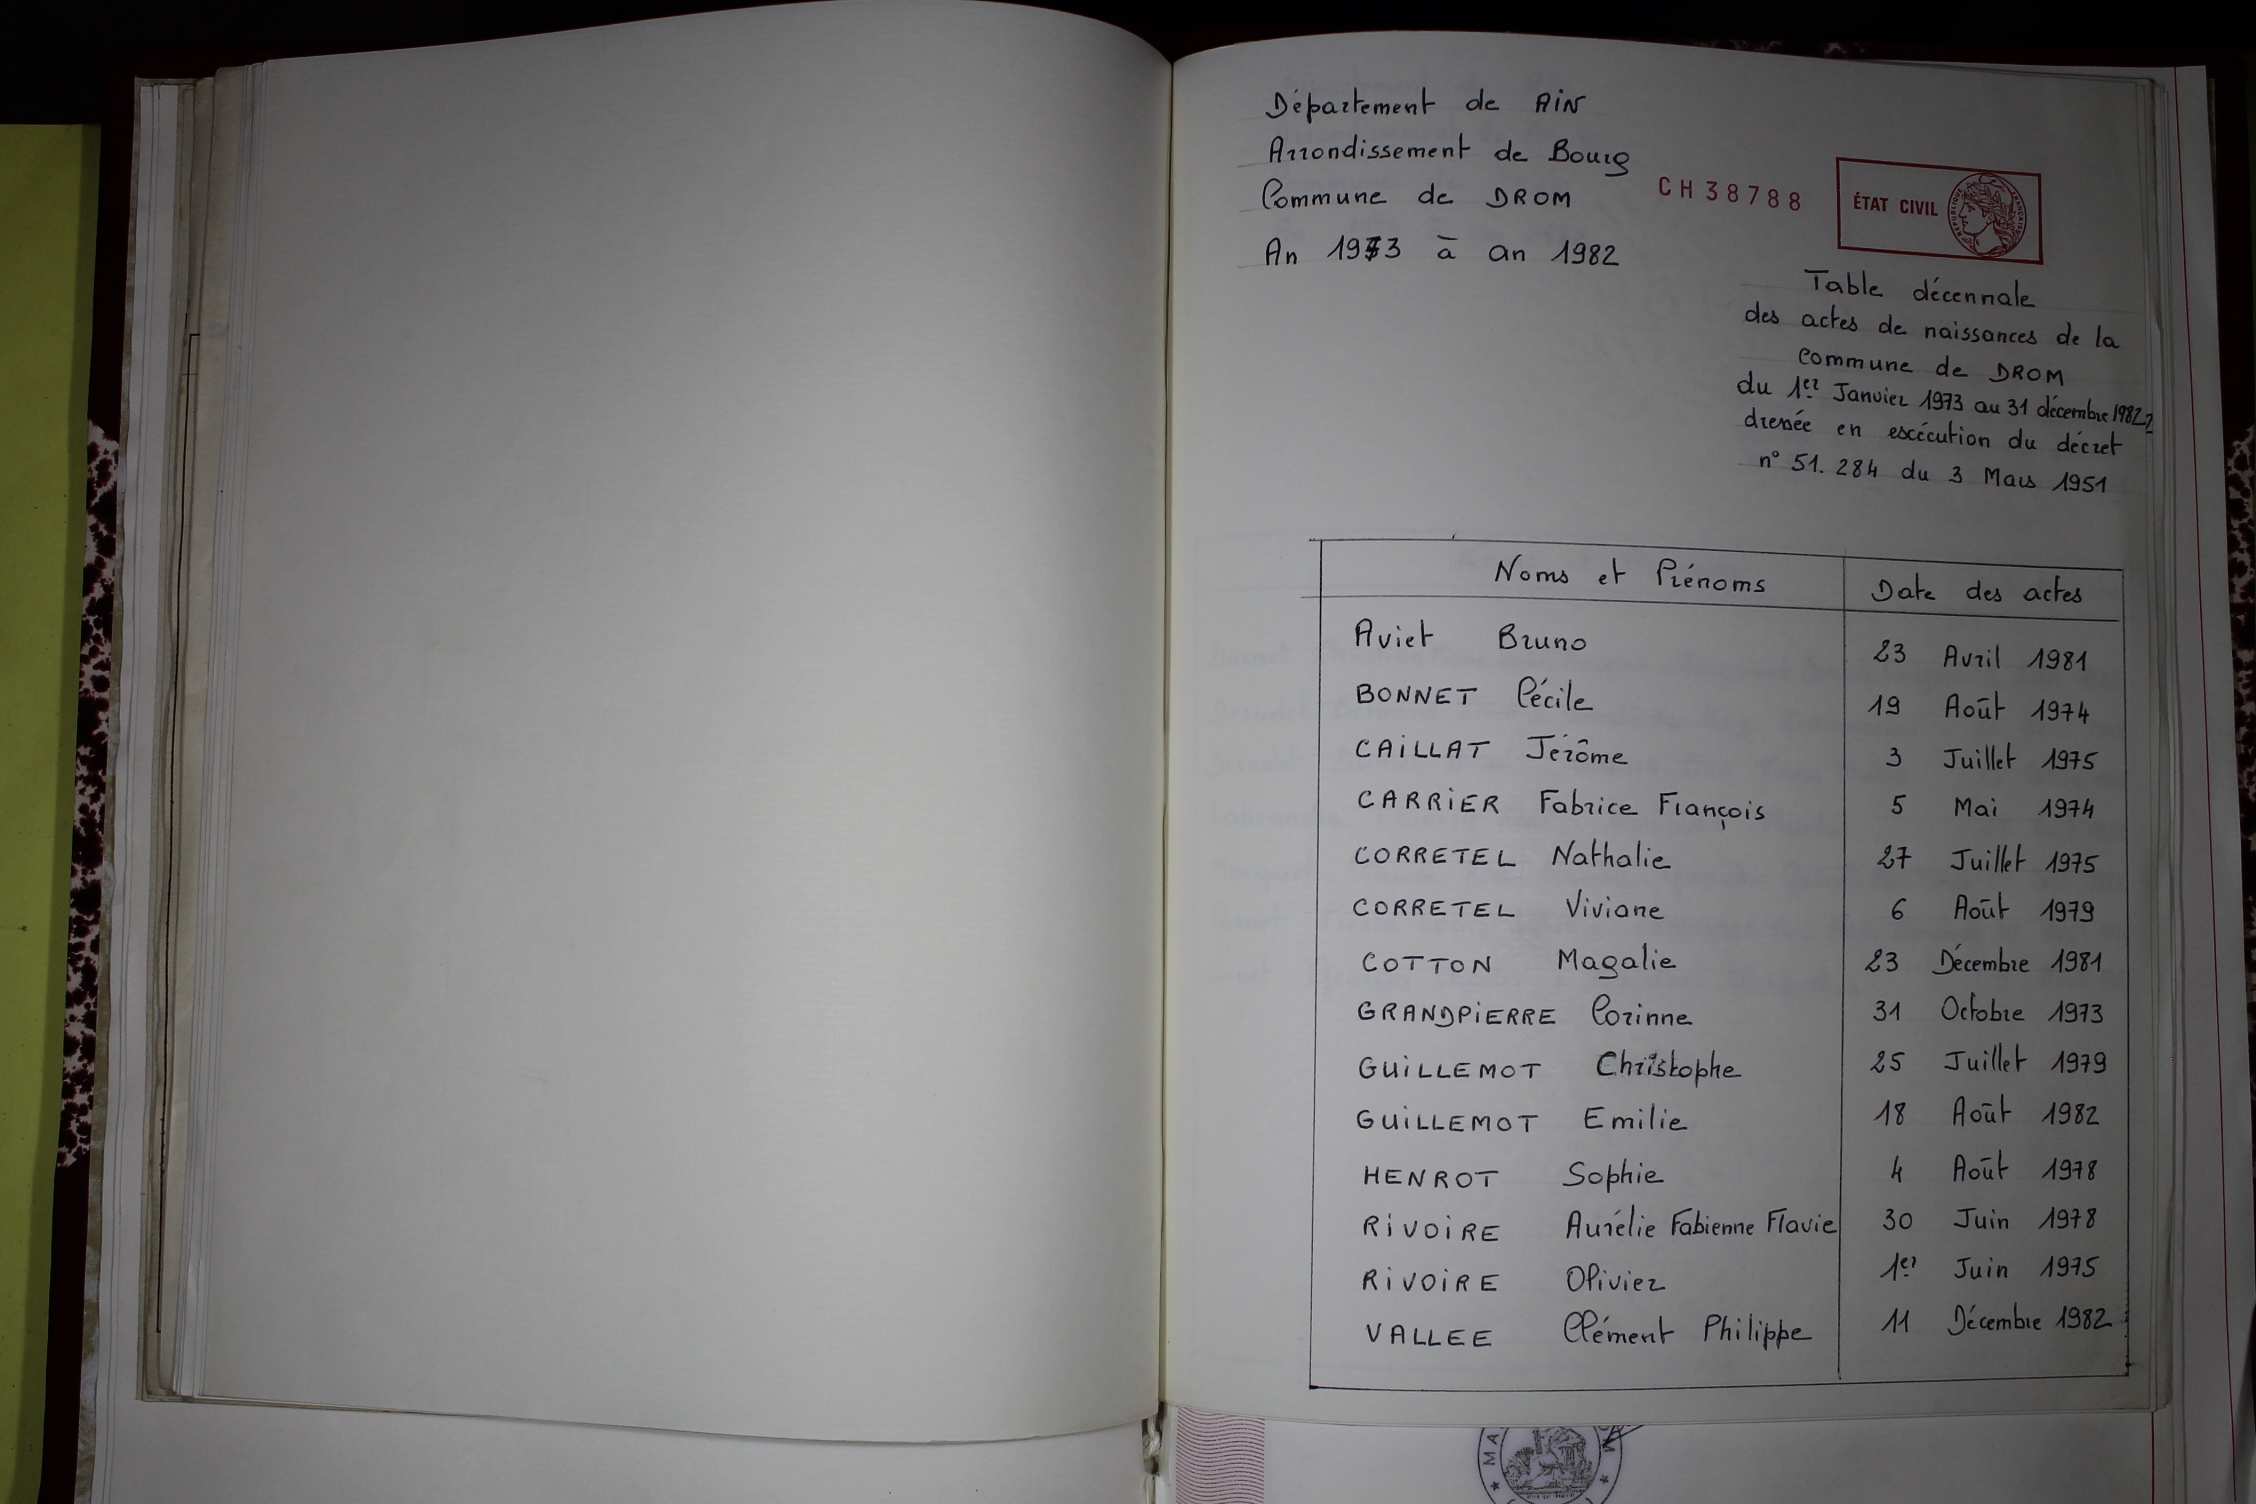 Département de AiN
Arrondissement de Bourg
Commune de DROM
CH38788
ÉTAT CIVIL
An 1973 à an 1982
Table décennale
des actes de naissances de la
commune de DROM
du 1er Janvier 1973 au 31 décembre 1982
dressée en escécution du décret
n° 51.284 du 3 Mars 1951
Noms et Prénoms Date des actes
Aviet Bruno 23 Avril 1981
BONNET Cécile 19 Août 1974
CAiLLAT Jérôme 3 Juillet 1975
CARRiER Fabrice François 5 Mai 1974
CORRETEL Nathalie 27 Juillet 1975
CORRETEL Viviane 6 Août 1979
COTTON Magalie 23 Décembre 1981
GRANDPiERRE Corinne 31 Octobre 1973
GUiLLEMOT Christophe 25 Juillet 1979
GUiLLEMOT Emilie 18 Août 1982
HENROT Sophie 4 Août 1978
RiVOiRE Aurélie Fabienne Flavie 30 Juin 1978
RiVOiRE Olivier 1er Juin 1975
VALLEE Clément Philippe 11 Décembre 1982